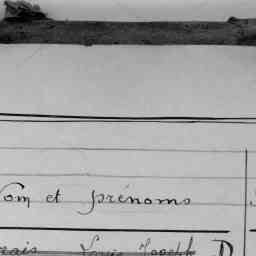 Nom et prénoms
Louis Joseph D